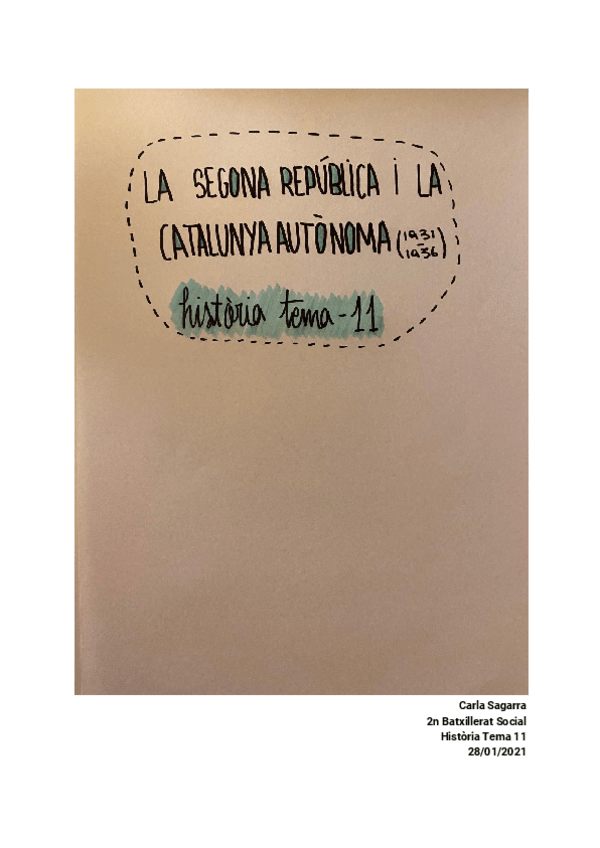 LA SEGONA REPÚBLICA i LA
CATALUNYA AUTÒNOMA (1931-1936)
història tema - 11
Carla Sagarra
2n Batxillerat Social
Història Tema 11
28/01/2021